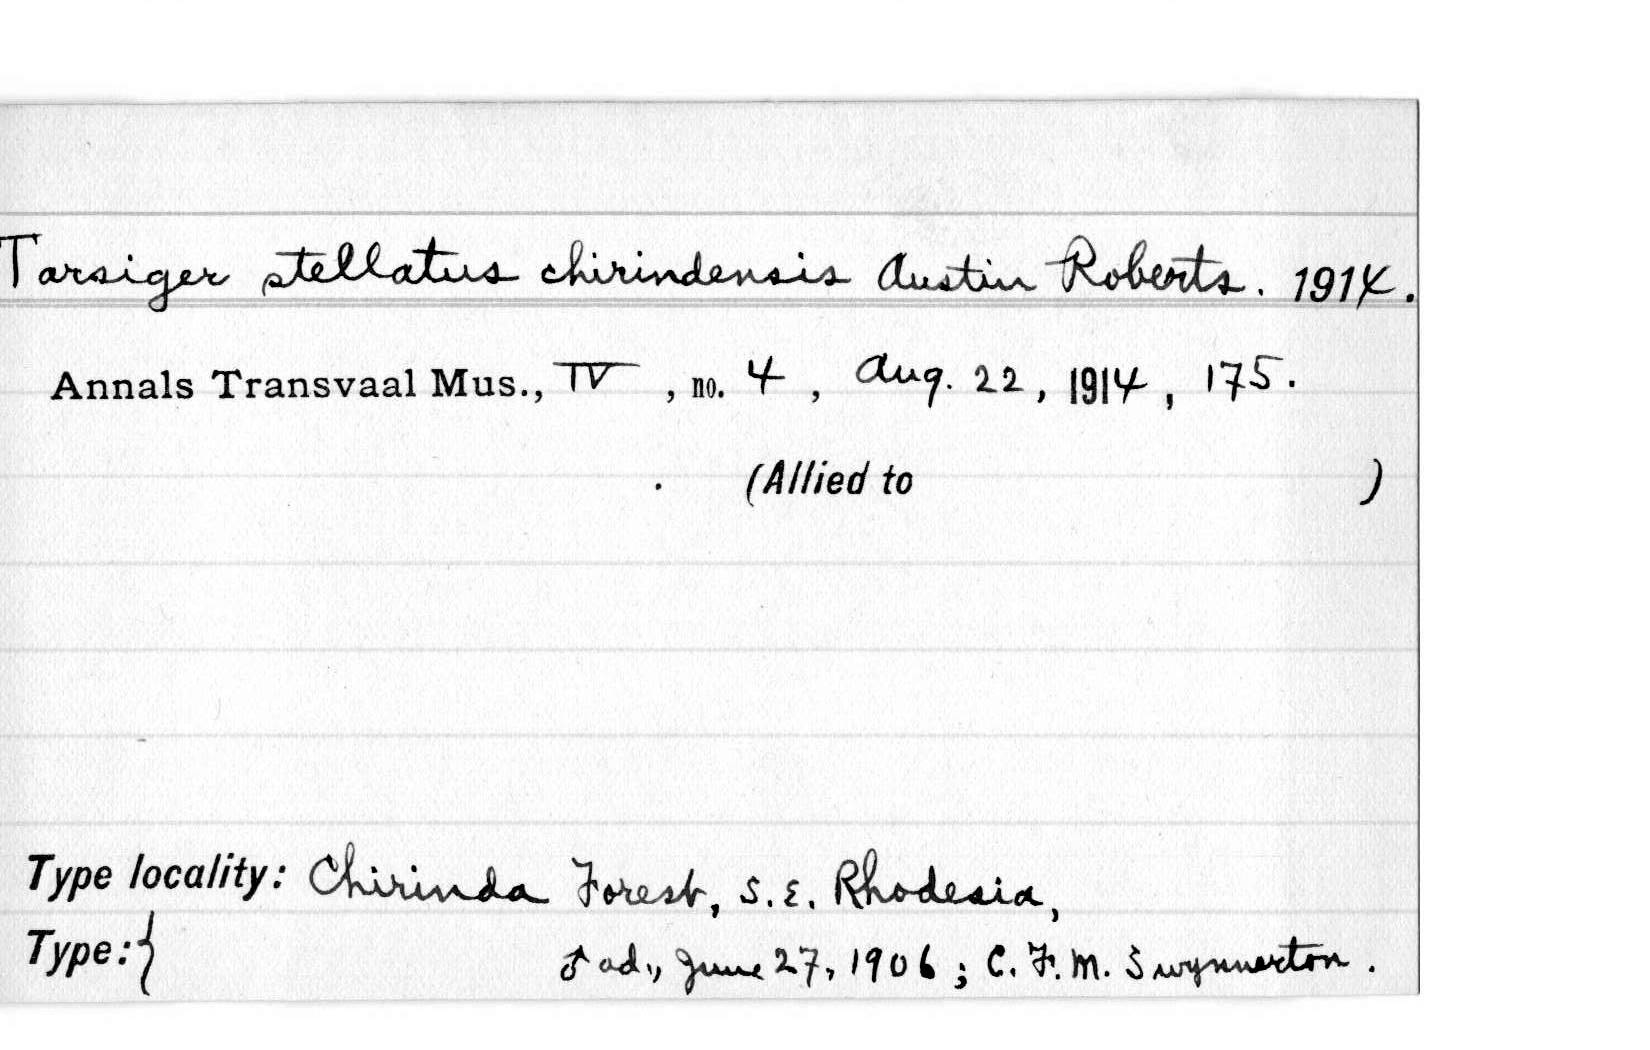 Tarsiger stellatus chirindensis Austin Roberts. 1914.
Annals Transvaal Mus., IV, no. 4, Aug. 22, 1914, 175.
. (Allied to )
Type locality: Chirinda Forest, S.E. Rhodesia,
Type:{ ♂ ad., June 27, 1906; C.F.M. Swynnerton.